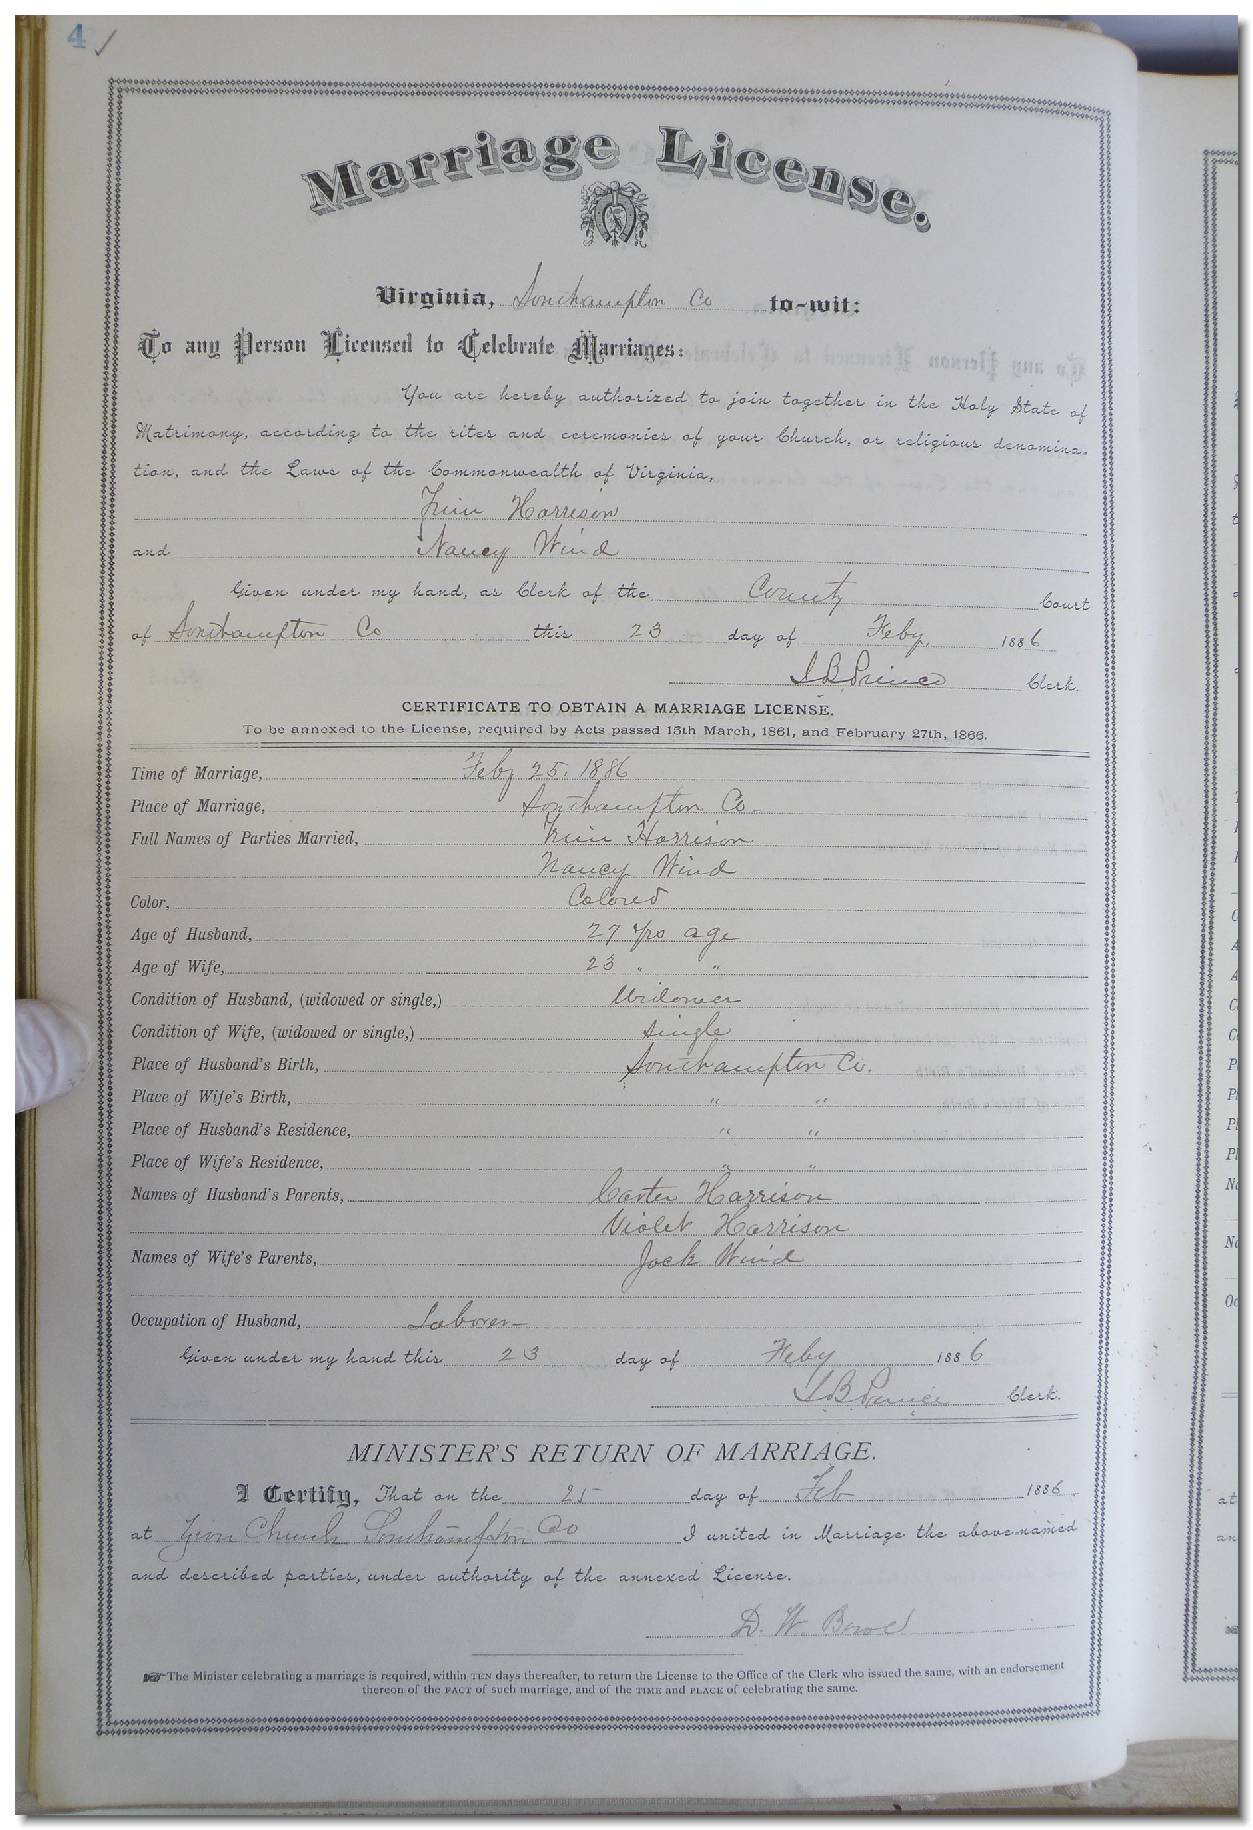 4
Marriage License.
Virginia, Southampton Co to-wit:
To any Person Licensed to Celebrate Marriages:
You are hereby authorized to join together in the Holy State of
Matrimony, according to the rites and ceremonies of your Church, or religious denomina-
tion, and the Laws of the Commonwealth of Virginia,
Harrison
and Nancy Wind
Given under my hand, as Clerk of the County Court
of Southampton Co this 23 day of Feby. 1886
Prince Clerk.
CERTIFICATE TO OBTAIN A MARRIAGE LICENSE.
To be annexed to the License, required by Acts passed 15th March, 1861, and February 27th, 1866.
Time of Marriage, Feby 25. 1886
Place of Marriage, Southampton Co.
Full Names of Parties Married, Harrison
Nancy Wind
Color, Colored
Age of Husband, 27 yrs age
Age of Wife, 23 " "
Condition of Husband, (widowed or single,) Widower
Condition of Wife, (widowed or single,) single
Place of Husband's Birth, Southampton Co.
Place of Wife's Birth, " "
Place of Husband's Residence, " "
Place of Wife's Residence, " "
Names of Husband's Parents, Carter Harrison
Violet Harrison
Names of Wife's Parents, Jack Wind
Occupation of Husband, Laborer
Given under my hand this 23 day of Feby 1886
Prince Clerk.
MINISTER'S RETURN OF MARRIAGE.
I Certify, That on the 25 day of Feb 1886
at Church Southampton Co I united in Marriage the above-named
and described parties, under authority of the annexed License.
D. W.
The Minister celebrating a marriage is required, within TEN days thereafter, to return the License to the Office of the Clerk who issued the same, with an endorsement
thereon of the FACT of such marriage, and of the TIME and PLACE of celebrating the same.